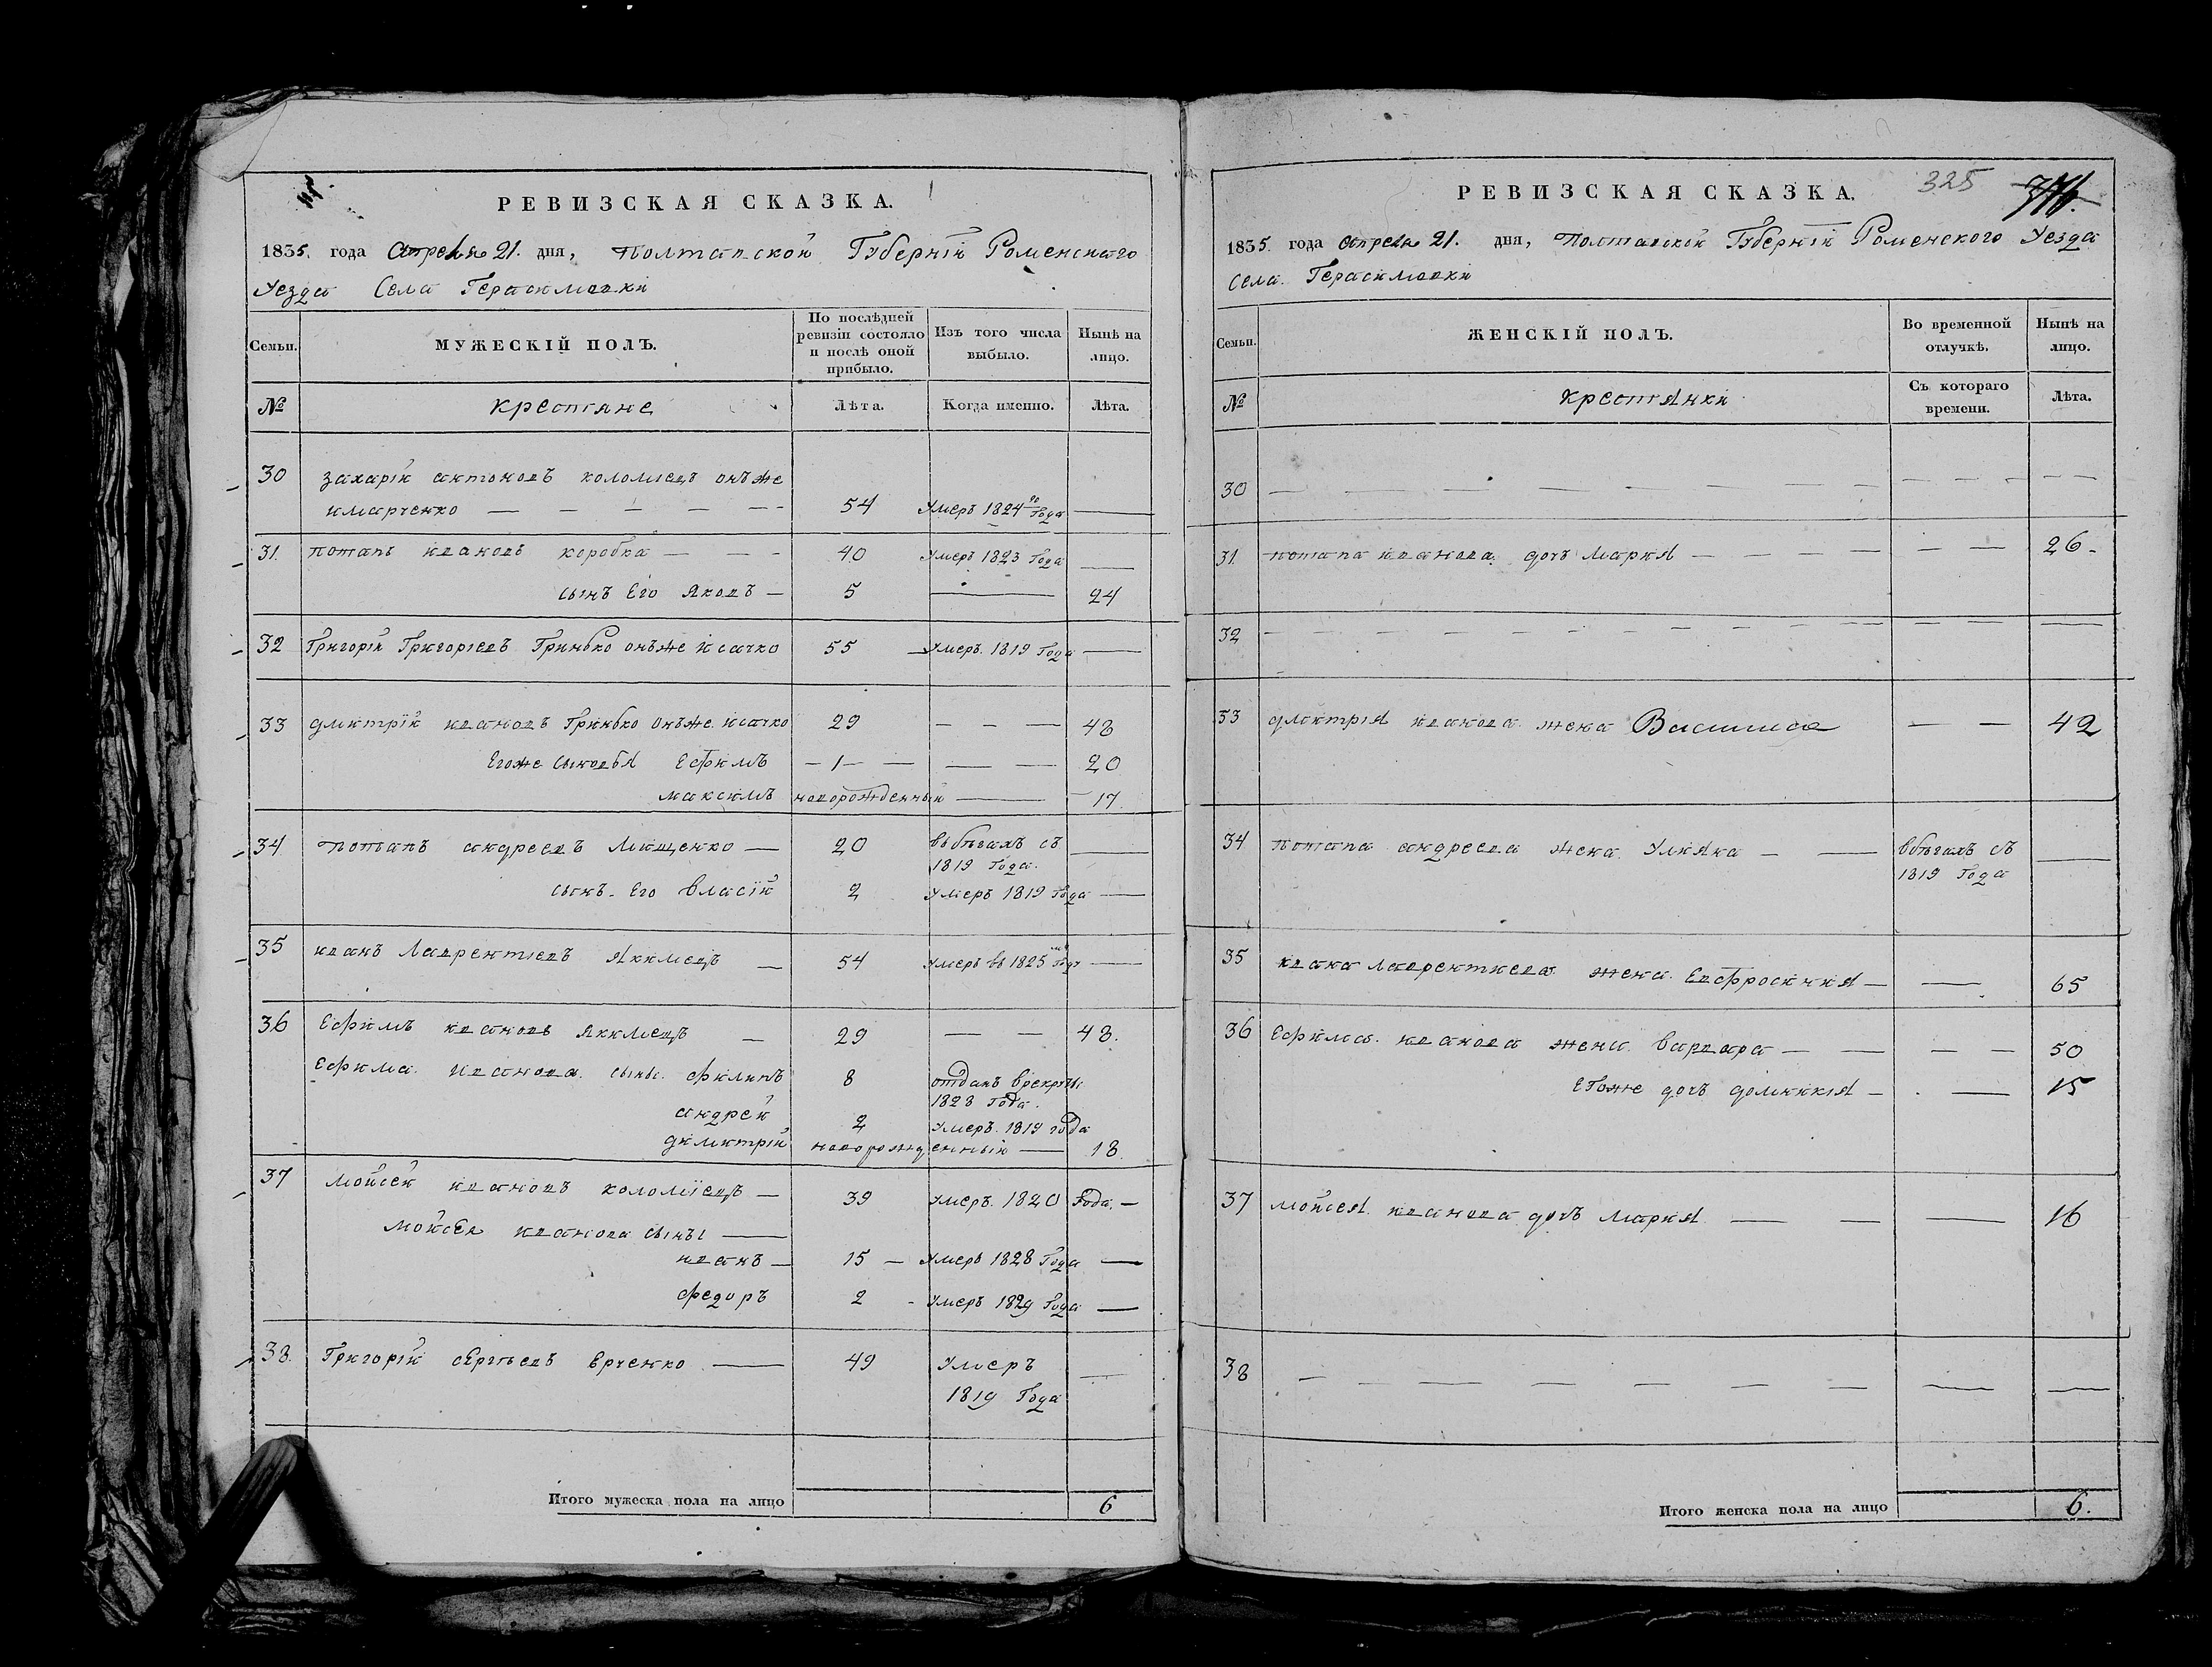 РЕВИЗСКАЯ СКАЗКА.
1835. года Апреля 21. дня, Полтавской Губернїи Роменскаго
Уезда Села Герасимовки
Семьи. МУЖЕСКІЙ ПОЛЪ. По послѣдней ревизіи состояло и послѣ оной прибыло. Изъ того числа выбыло. Нынѣ на лицо.
№ крестяне Лѣта. Когда именно. Лѣта.
30 захарїи антоновъ коломіецъ онъже
имарченко — 54 Умеръ 1824го Года —
31. потапъ ивановъ коробка — 40 Умеръ 1823 Года —
сынъ Его Яковъ — 5 — 24
32 Григорїи Григоріевъ Гринько онъже исачко 55 Умеръ. 1819 Года —
33 дмитрїи ивановъ Гринько онъже исачко 29 — 48
Егоже сыновья Ефимъ — 1 — 20
максимъ новорожденный — 17.
34 потапъ андреевъ Мищенко — 20 вбѣгахъ съ
1819 Года. —
сынъ. Его власїи 2 Умеръ 1819 Года —
35 иванъ Лаврентіевъ Якимецъ — 54 Умеръ въ 1825 Году —
36 Ефимъ ивановъ Якимецъ — 29 — 48.
Ефима. Иванова. сыны. филипъ 8 отданъ врекруты
1828 года.
андрей 2 Умеръ. 1819 года
димитрїи новорожденный — 18.
37 Мойсей ивановъ коломїецъ — 39 Умеръ. 1820 Года. —
Мойсея иванова сыны —
иванъ — 15 — Умеръ 1828 Года —
федоръ 2 - Умеръ 1829 Года —
38. Григорїи сергіевъ ерченко — 49 Умеръ
1819 Года —
Итого мужеска пола на лицо 6
РЕВИЗСКАЯ СКАЗКА. 325
1835. года Апреля 21. дня, Полтавской Губернїи Роменского Уезда
Села. Герасимовки
Семьи. ЖЕНСКІЙ ПОЛЪ. Во временной отлучкѣ. Нынѣ на лицо.
№ крестянки Съ котораго времени. Лѣта.
30 —
31. потапа иванова. дочъ Мария — 26 -
32 —
33 дмитрія иванова. жена Василиса — 42
34 потапа андреева жена. Улияна — вбѣгахъ съ
1819 Года —
35 ивана лаврентиева. жена. Евфросиния — 65
36 Ефима. иванова жена. варвара — 50
Егоже дочъ доминикія — 15
37 мойсея. иванова дочъ мария — 16
38 —
Итого женска пола на лицо 6.